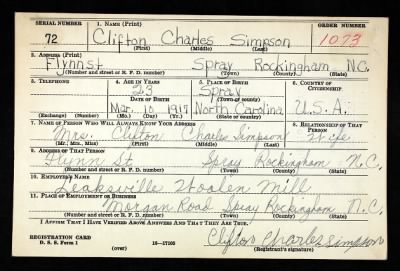 SERIAL NUMBER 1. NAME (Print) ORDER NUMBER
72 Clifton Charles Simpson 1073
(First) (Middle) (Last)
2. ADDRESS (Print)
Flynn St Spray Rockingham N.C.
(Number and street or R. F. D. number) (Town) (County) (State)
3. TELEPHONE 4. AGE IN YEARS 5. PLACE OF BIRTH 6. COUNTRY OF CITIZENSHIP
23 Spray
DATE OF BIRTH (Town or county)
Mar. 10 1917 North Carolina U.S.A.
(Exchange) (Number) (Mo.) (Day) (Yr.) (State or country)
7. NAME OF PERSON WHO WILL ALWAYS KNOW YOUR ADDRESS 8. RELATIONSHIP OF THAT PERSON
Mrs. Clifton Charles Simpson Wife
(Mr., Mrs., Miss) (First) (Middle) (Last)
9. ADDRESS OF THAT PERSON
Flynn St Spray Rockingham N.C.
(Number and street or R. F. D. number) (Town) (County) (State)
10. EMPLOYER'S NAME
Leaksville Woolen Mill
11. PLACE OF EMPLOYMENT OR BUSINESS
Morgan Road Spray Rockingham N.C.
(Number and street or R. F. D. number) (Town) (County) (State)
I AFFIRM THAT I HAVE VERIFIED ABOVE ANSWERS AND THAT THEY ARE TRUE.
REGISTRATION CARD
D. S. S. Form 1 (over) 16—17105 Clifton Charles Simpson
(Registrant's signature)